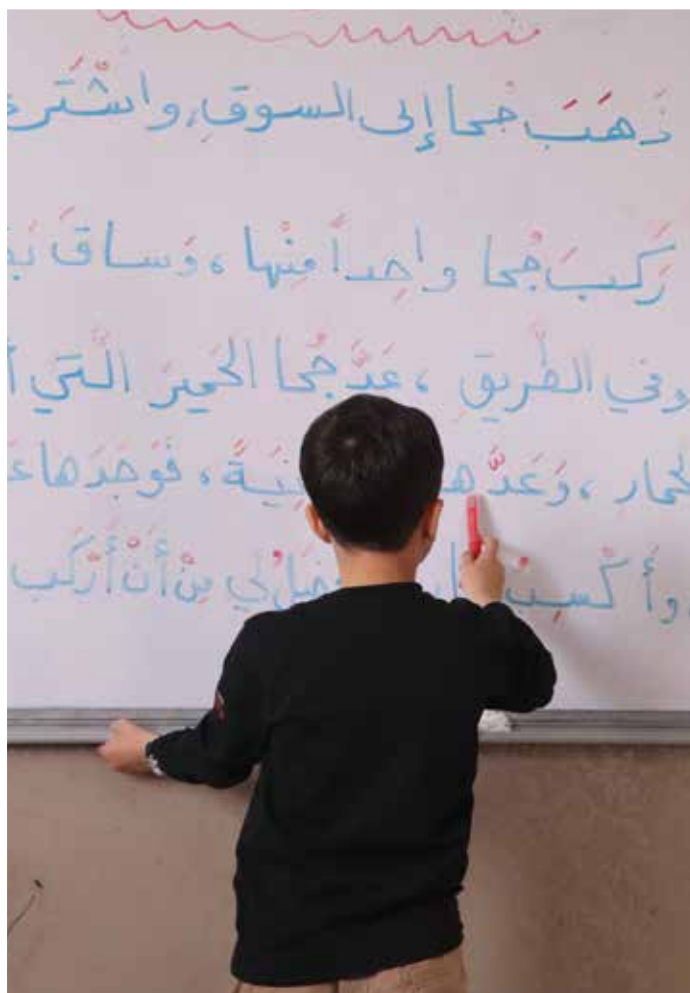 ذَهَبَ جُحا إلى السوقِ، واشْتَرى
رَكِبَ جُحا واحِداً مِنْها، وَساقَ
وفي الطَّريقِ، عَدَّ جُحا الحَميرَ الَّتي
الحمارِ، وَعَدَّها ، فَوَجَدَها
وأَكْسِبَ لي مِنْ أَنْ أَرْكَب